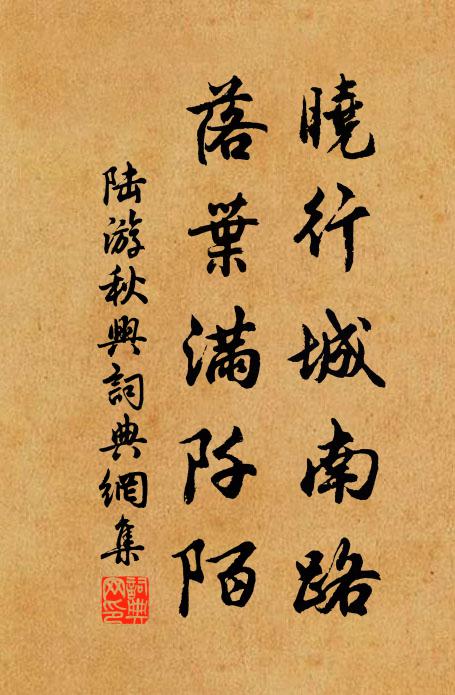 曉行城南路
落葉滿阡陌
陸游秋興詞典網集
詞典網印